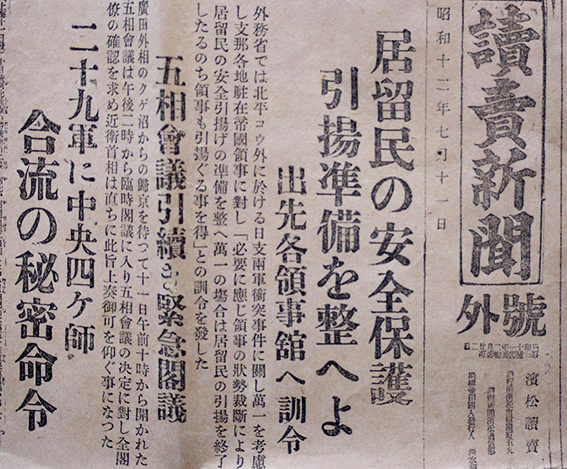 讀賣新聞
號外
濱松讀賣
昭和十二年七月十一日
居留民の安全保護
引揚準備を整へよ
出先各領事館へ訓令
外務省では北平コウ外に於ける日支兩軍衝突事件に關し萬一を考慮
し支那各地駐在帝國領事に對し「必要に應じ領事の狀勢裁斷により
居留民の安全引揚げの準備を整へ萬一の塲合は居留民の引揚を終了
したるのち領事も引揚ぐる事を得」との訓令を發した
五相會議引續き緊急閣議
廣田外相のクゲ沼からの歸京を待つて十一日午前十時から開かれた
五相會議は午後二時から臨時閣議に入り五相會議の決定に對し全閣
僚の確認を求め近衛首相は直ちに此旨上奏御可を仰ぐ事になつた
二十九軍に中央四ケ師
合流の秘密命令